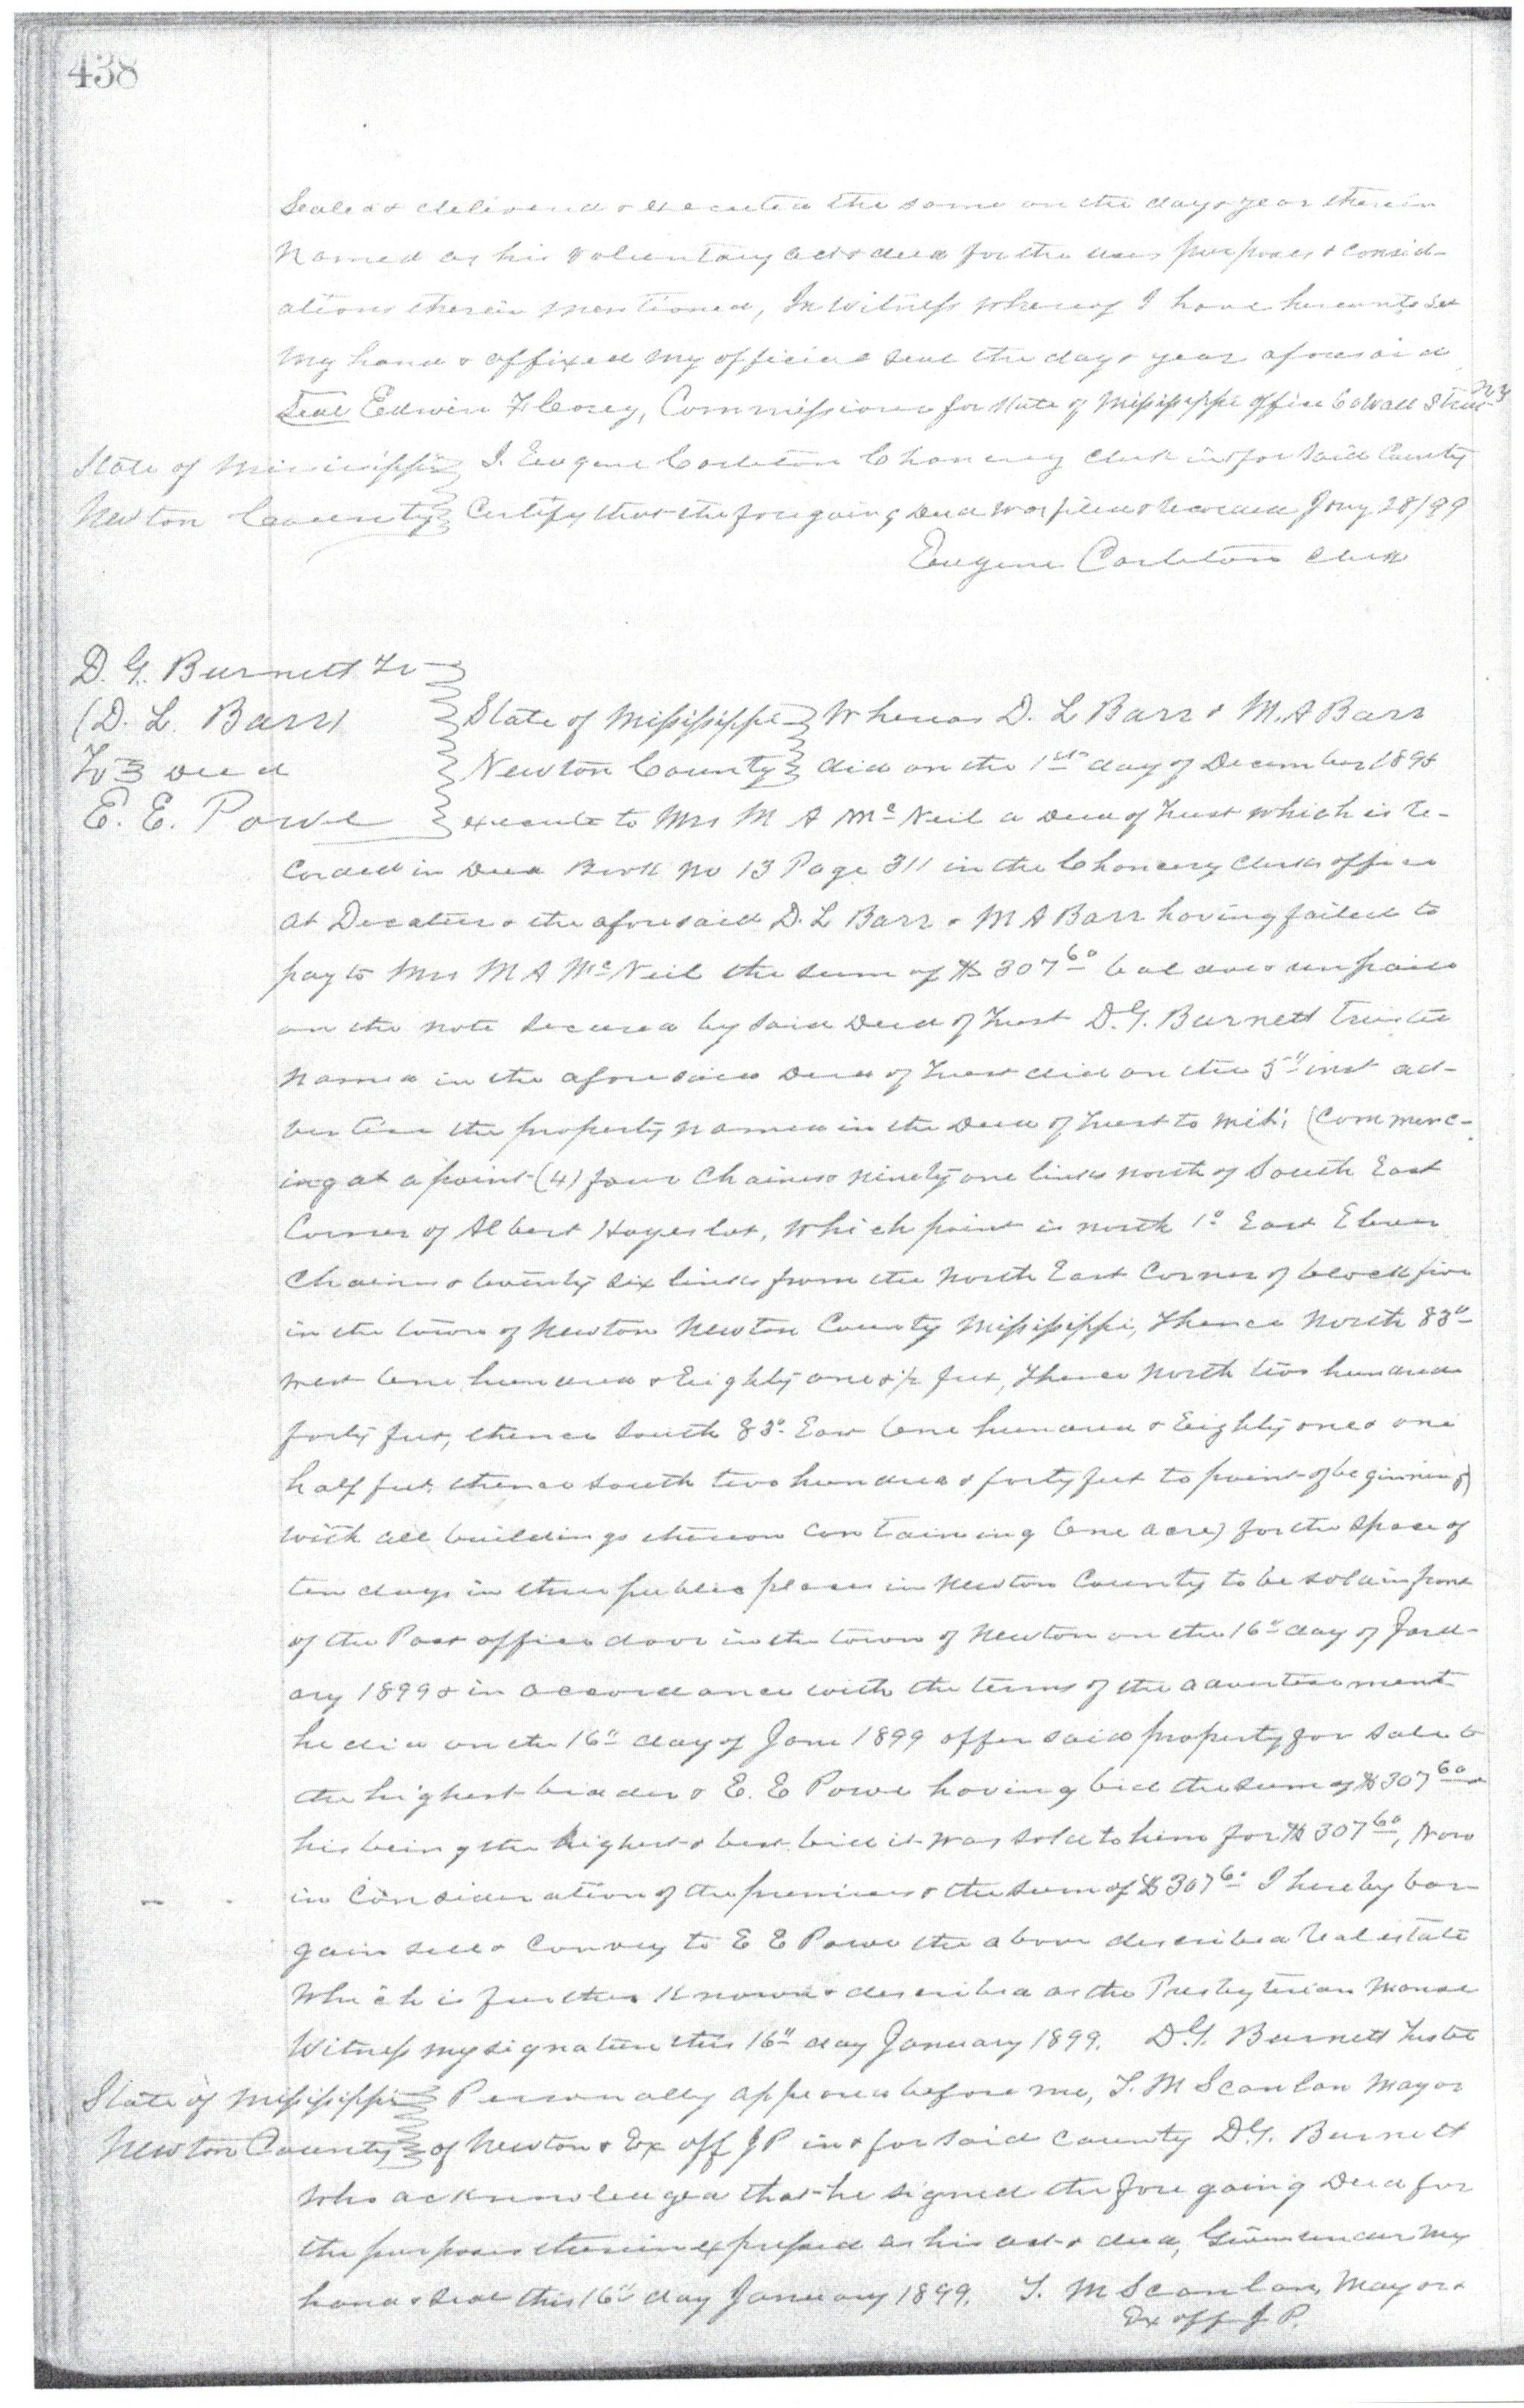 438
Sealed & delivered & executed the same on the day & year therein
Named as his voluntary act & deed for the uses purposes & consid-
ations therein mentioned, In Witness Whereof I have hereunto set
My hand & affixed my official seal the day & year aforesaid
Seal Edwin F Corey, Commissioner for State of Mississippi office 60 Wall Street N.Y
State of Mississippi I. Eugene Carleton Chancery Clerk in & for said County
Newton County Certify that the foregoing Deed was filed & Recorded Jany 28/99
Eugene Carleton Clerk
D. G. Burnett Tr
(D. L. Barr)
To Deed
E. E. Powe
State of Mississippi Whereas D. L Barr & M. A Barr
Newton County did on the 1st day of December 1898
execute to Mrs M A McNeil a Deed of Trust which is re-
corded in Deed Book No 13 Page 311 in the Chancery Clerks office
at Decatur & the aforesaid D. L Barr & M A Barr having failed to
pay to Mrs M A McNeil the sum of $307 60 balance unpaid
on the note secured by said Deed of Trust D. G. Burnett Trustee
Named in the aforesaid Deed of Trust did on the 5" inst ad-
vertise the property named in the Deed of Trust to wit; (Commenc-
ing at a point (4) four Chains & ninety one links north of South East
Corner of Albert Hayes lot, Which point is north 1° East Eleven
Chains & twenty six links from the North East Corner of block five
in the town of Newton Newton County Mississippi, Thence North 83°
West One hundred & Eighty one & 1/2 feet, Thence North two hundred
forty feet, thence South 83° East One hundred & Eighty one & one
half feet, thence South two hundred & forty feet to point of beginning)
with all buildings thereon containing (one acre) for the space of
ten days in three public places in Newton County to be sold in front
of the Post office door in the town of Newton on the 16" day of Janu-
ary 1899 & in accordance with the terms of the advertisement
he did on the 16" day of Jany 1899 offer said property for sale to
the highest bidder & E. E Powe having bid the sum of $307 60 &
his being the highest & best bid it was sold to him for $307 60, Now
in Consideration of the premises & the sum of $307 60 I hereby bar-
gain sell & Convey to E E Powe the above described real estate
Which is further Known & described as the Presbyterian Manse
Witness my signature this 16" day January 1899. D. G. Burnett Trustee
State of Mississippi Personally appeared before me, T. M Scanlan Mayor
Newton County of Newton & Ex off J P in & for said County D. G. Burnett
who acknowledged that he signed the foregoing Deed for
the purposes therein expressed as his act & deed, Given under My
hand & seal this 16" day January 1899. T. M Scanlan, Mayor &
Ex off J P.